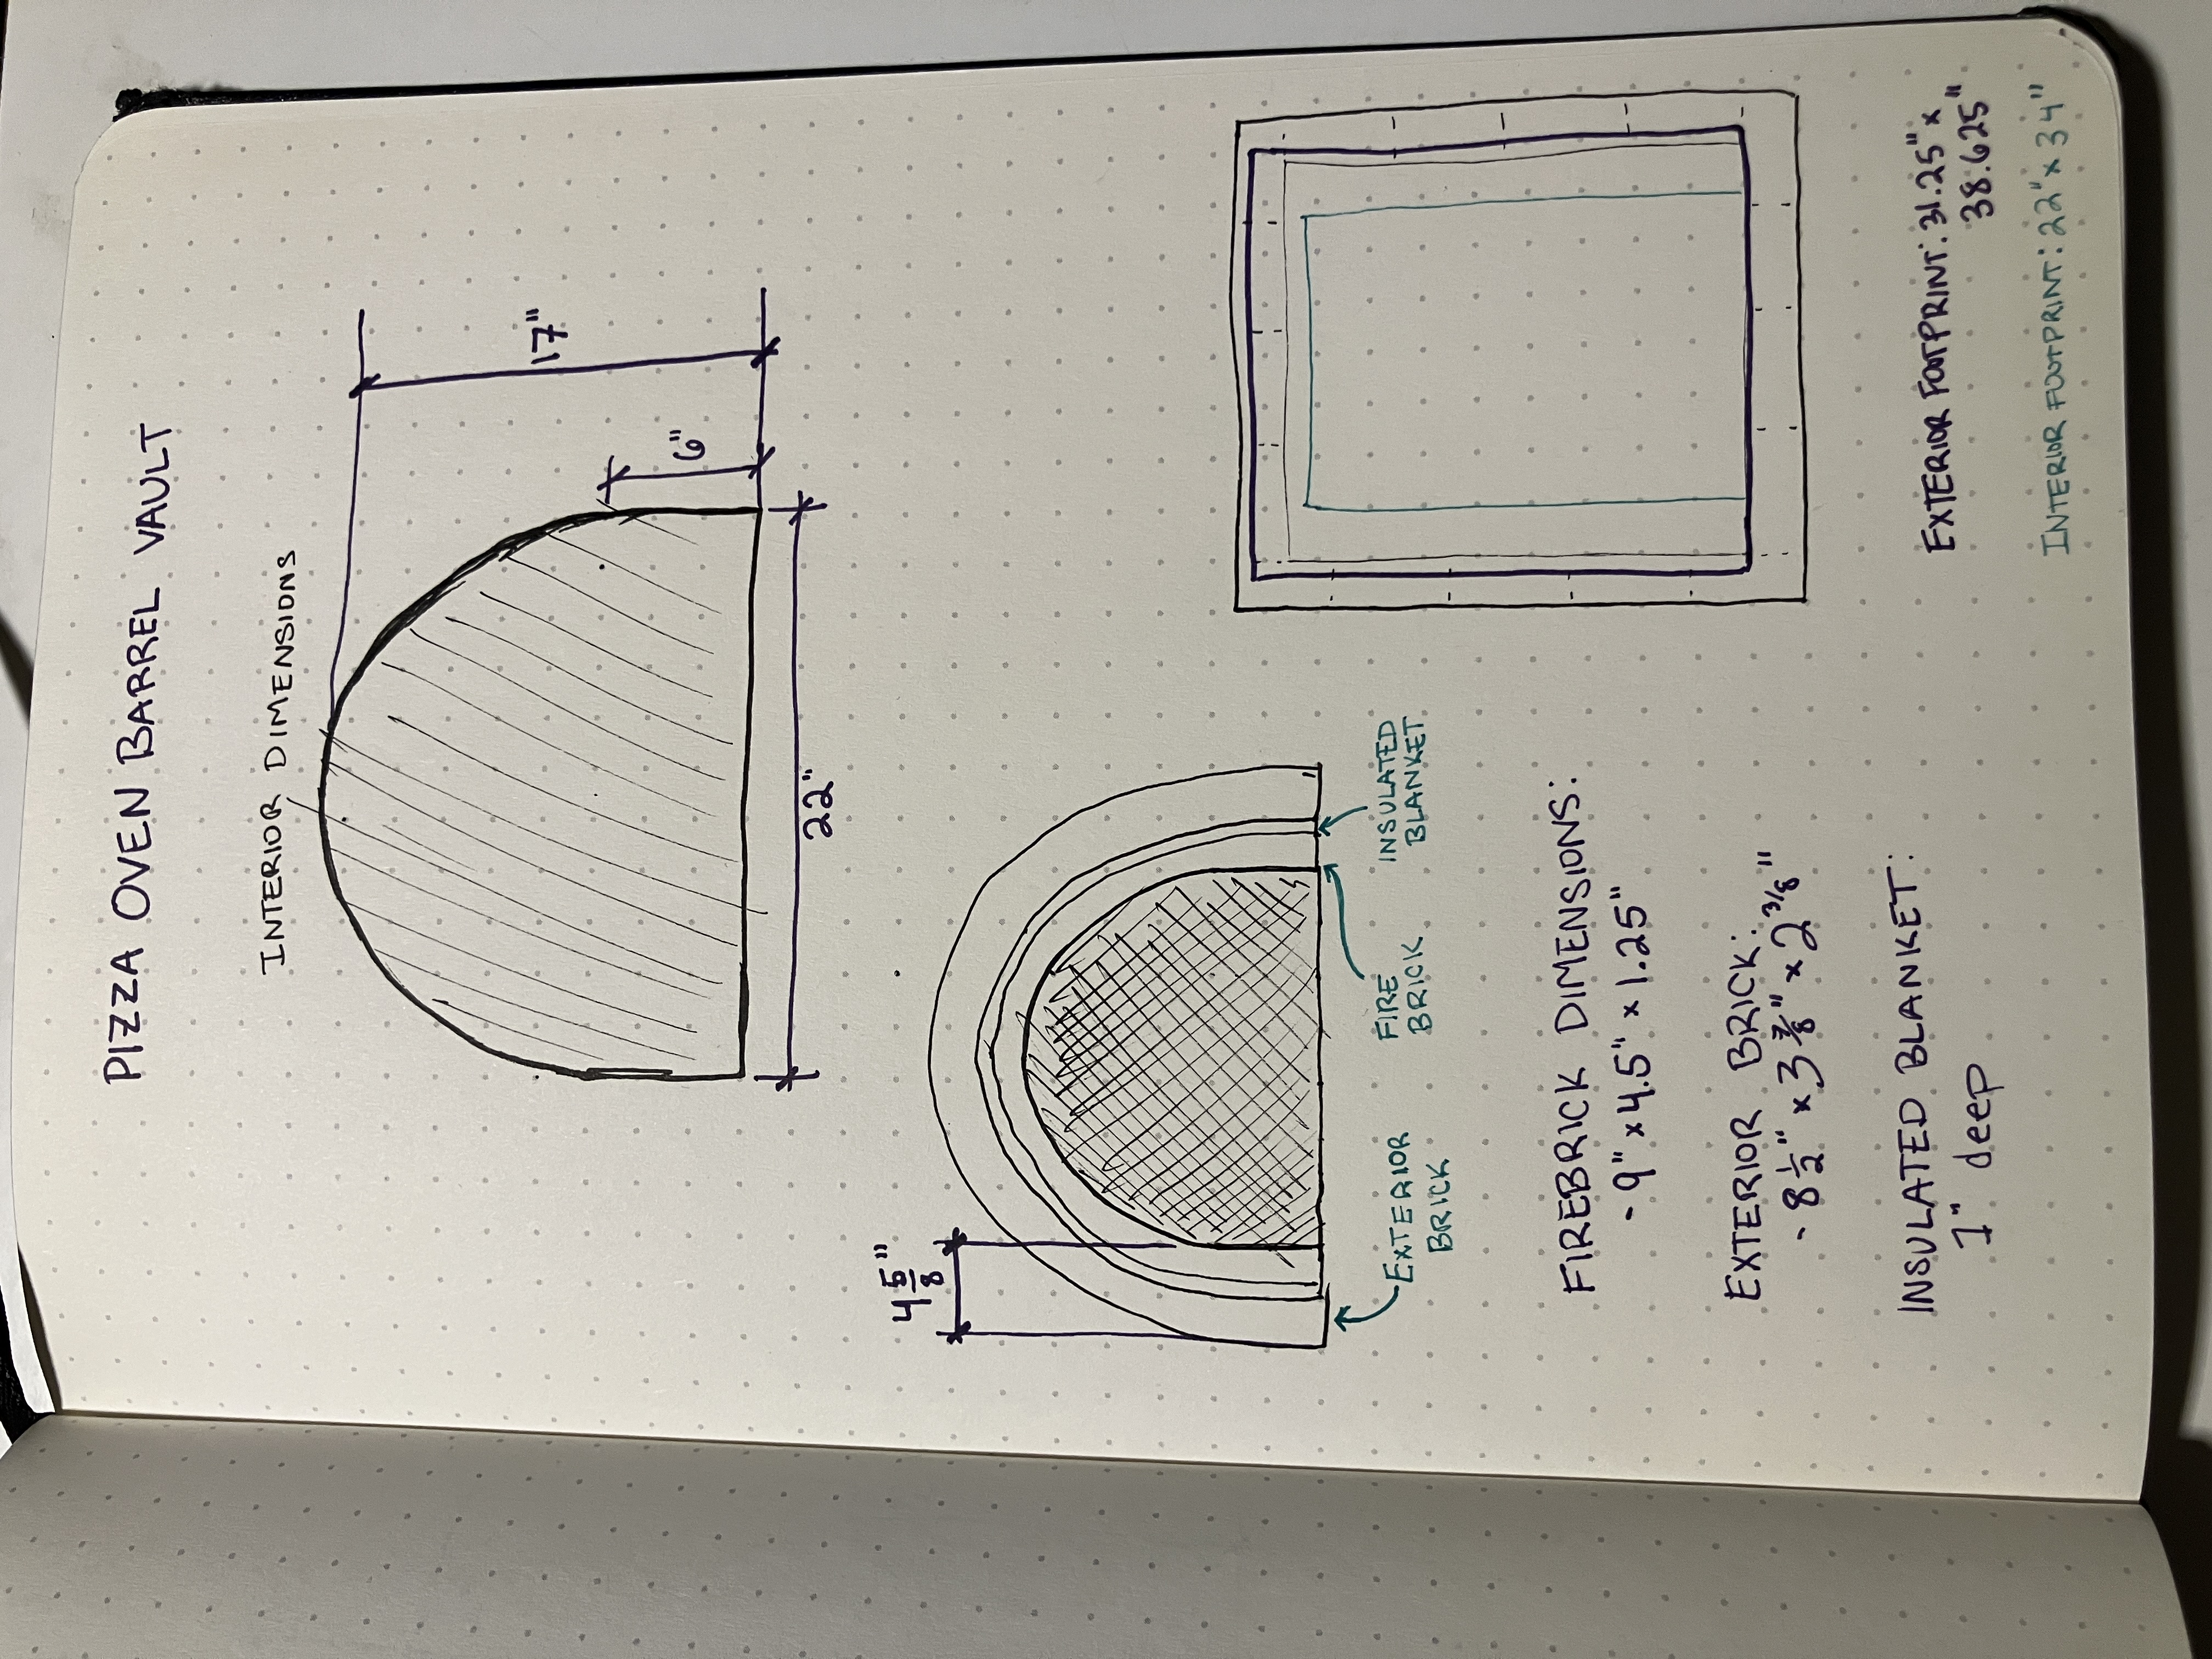 PIZZA OVEN BARREL VAULT
INTERIOR DIMENSIONS
17"
6"
22"
4 5/8"
EXTERIOR
BRICK
FIRE
BRICK
INSULATED
BLANKET
FIREBRICK DIMENSIONS:
- 9" x 4.5" x 1.25"
EXTERIOR BRICK:
- 8 1/2" x 3 7/8" x 2 3/8"
INSULATED BLANKET:
1" deep
EXTERIOR FOOTPRINT: 31.25" x
38.625"
INTERIOR FOOTPRINT: 22" x 34"